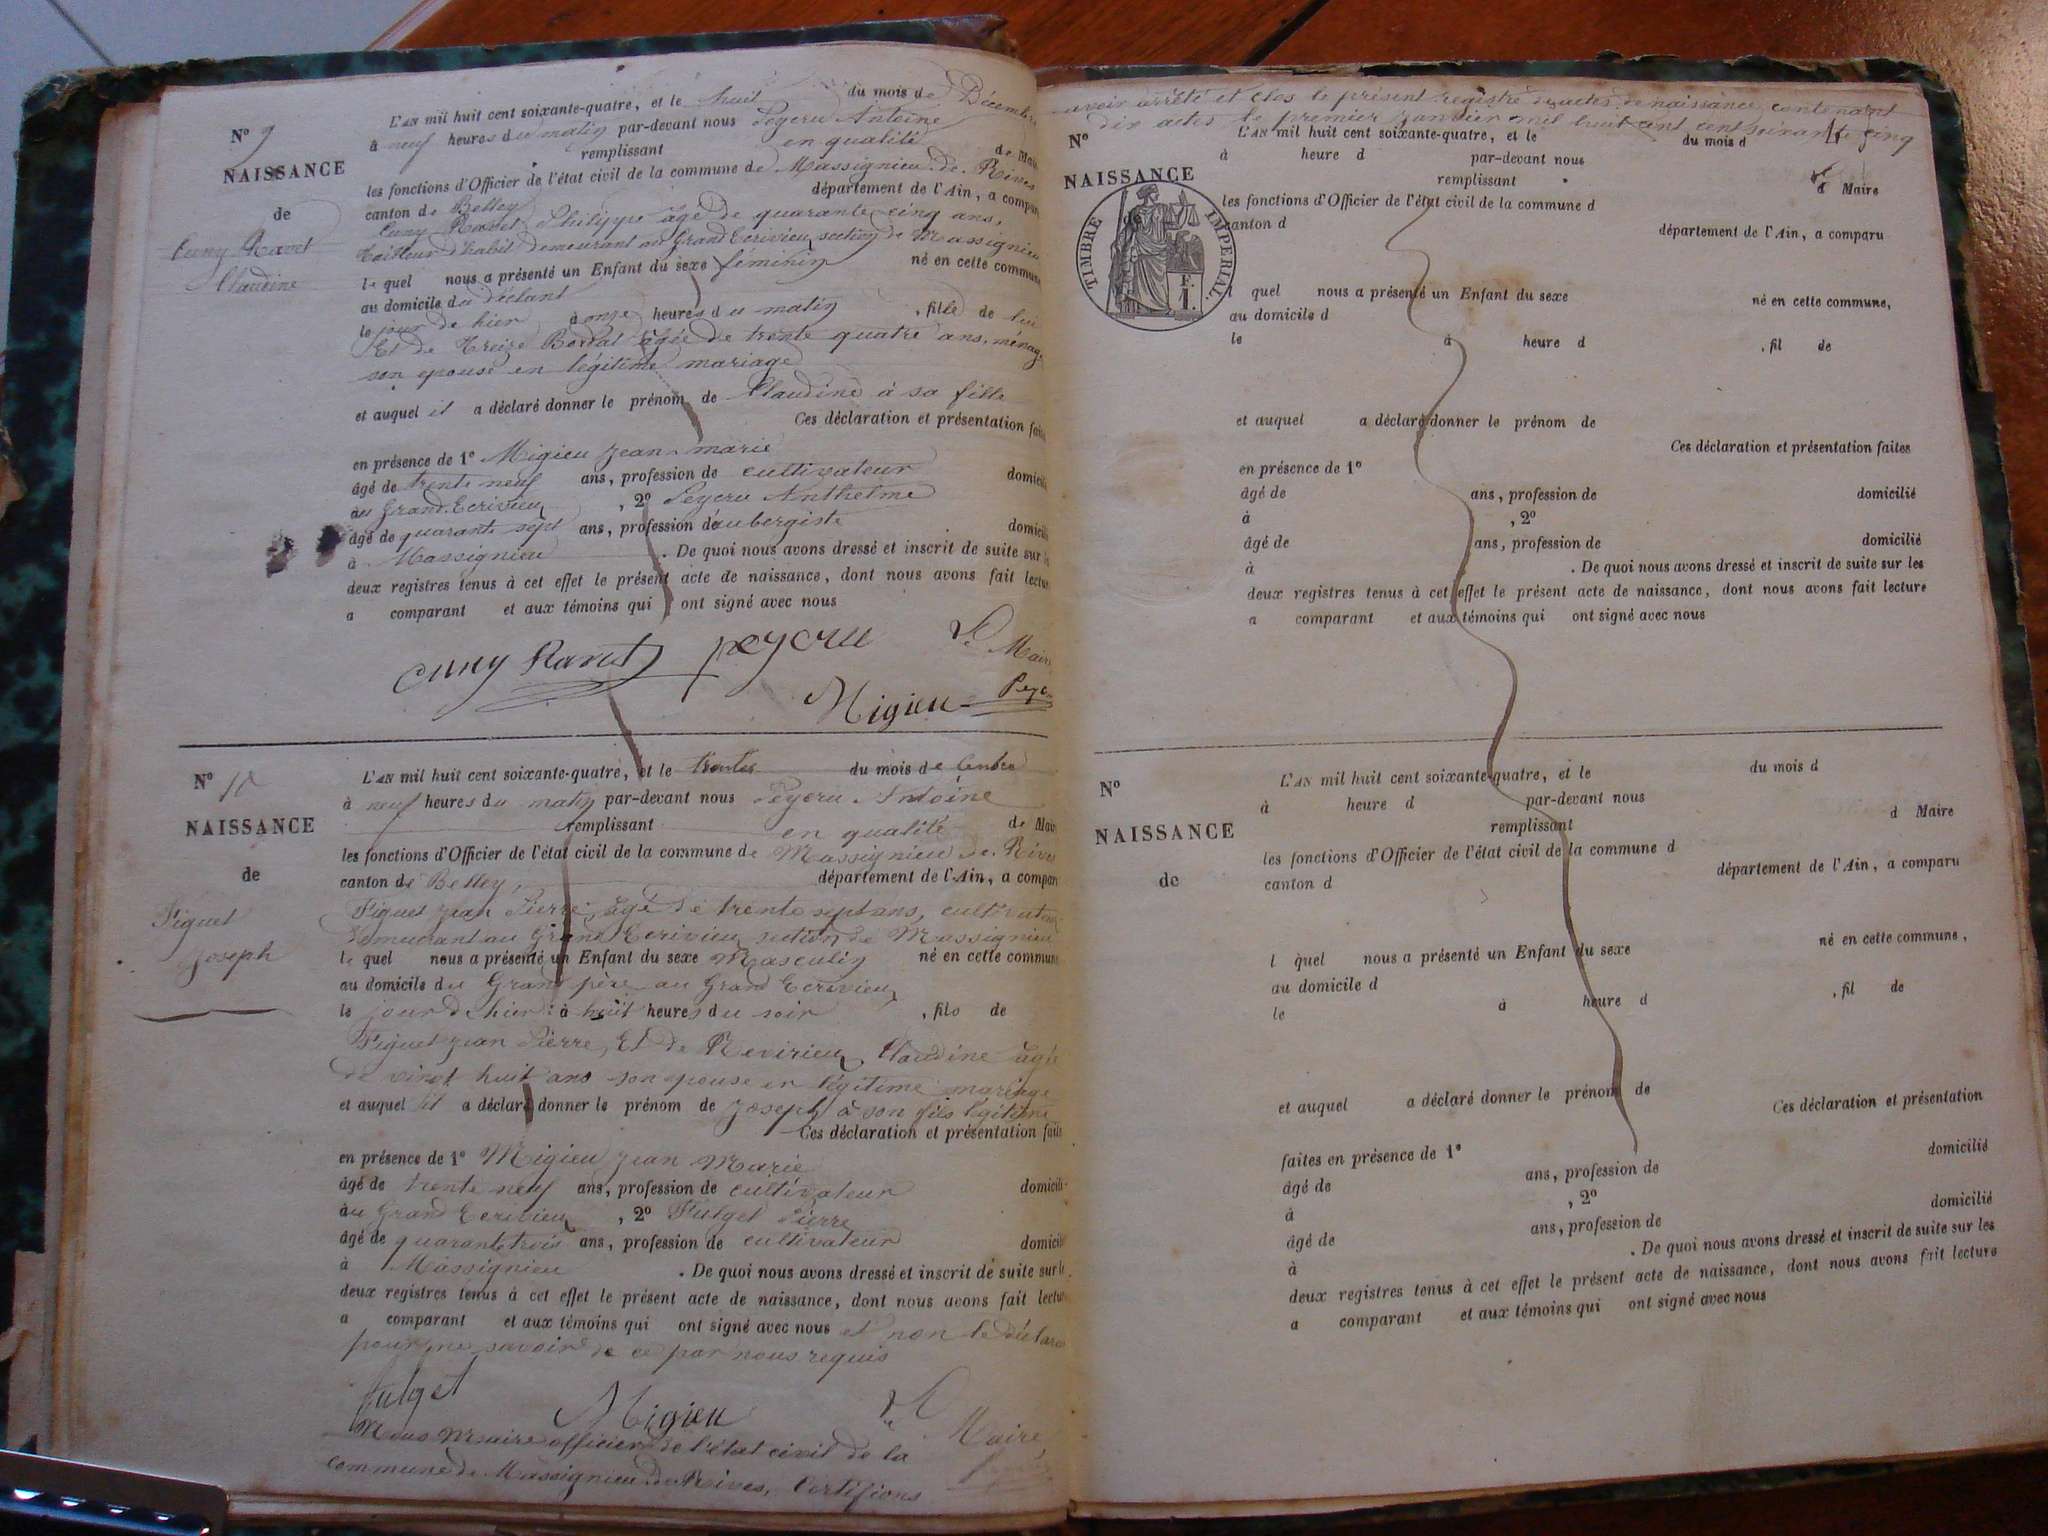 N° 9
NAISSANCE
de
Cuny Ravet
Claudine
L'AN mil huit cent soixante-quatre, et le huit du mois de Décembre
à neuf heures du matin par-devant nous Peycru Antoine
remplissant en qualité de Mai
les fonctions d'Officier de l'état civil de la commune de Massignieu de Rives
canton de Belley département de l'Ain, a compar
Cuny Ravet Philippe âgé de quarante cinq ans,
tailleur d'habit demeurant au Grand Ecrivieu section de Massignieu
le quel nous a présenté un Enfant du sexe féminin né en cette commune
au domicile du déclant
le jour de hier à onze heures du matin , fille de lui
Et de Treize Bordat âgée de trente quatre ans, ménag
son epouse en légitime mariage
et auquel il a déclaré donner le prénom de Claudine à sa fille
Ces déclaration et présentation faites
en présence de 1° Migieu Jean marie
âgé de trente neuf ans, profession de cultivateur domicili
au Grand Ecrivieu , 2° Peycru Anthelme
âgé de quarante sept ans, profession d'aubergiste domicili
à Massignieu . De quoi nous avons dressé et inscrit de suite sur le
deux registres tenus à cet effet le présent acte de naissance, dont nous avons fait lectur
a comparant et aux témoins qui ont signé avec nous
Cuny Ravet peycru Le Maire
Migieu Peyc
N° 10
NAISSANCE
de
Figuet
Joseph
L'AN mil huit cent soixante-quatre, et le trentes du mois de
à neuf heures du matin par-devant nous Peycru Antoine
remplissant en qualité de Mai
les fonctions d'Officier de l'état civil de la commune de Massignieu de Rives
canton de Belley, département de l'Ain, a compar
Figuet Jean Pierre, âgé de trente sept ans, cultivateur
demeurant au Grand Ecrivieu section de Massignieu
le quel nous a présenté un Enfant du sexe Masculin né en cette commune
au domicile du Grand père au Grand Ecrivieu
le jour d'hier à huit heures du soir , fils de
Figuet Jean Pierre, Et de Revirieu Claudine âgée
de vingt huit ans son epouse en légitime mariage
et auquel il a déclaré donner le prénom de Joseph à son fils légitime
Ces déclaration et présentation faite
en présence de 1° Migieu Jean Marie
âgé de trente neuf ans, profession de cultivateur domicili
au Grand Ecrivieu , 2° Fulget Pierre
âgé de quarante trois ans, profession de cultivateur domicili
à Massignieu . De quoi nous avons dressé et inscrit de suite sur le
deux registres tenus à cet effet le présent acte de naissance, dont nous avons fait lectur
a comparant et aux témoins qui ont signé avec nous et non le déclarant
pour ne savoir de ce par nous requis
fulget Migieu Le Maire
Nous maire officier de l'état civil de la
commune de Massignieu de Rives, Certifions
avoir arrêté et clos le présent registre des actes de naissance, contenant
dix actes le premier janvier mil huit cent cent soixante cinq
N°
NAISSANCE
TIMBRE IMPERIAL.
F. 1.
L'AN mil huit cent soixante-quatre, et le du mois d
à heure d par-devant nous
remplissant d Maire
les fonctions d'Officier de l'état civil de la commune d
canton d département de l'Ain, a comparu
l quel nous a présenté un Enfant du sexe né en cette commune,
au domicile d
le à heure d , fil de
et auquel a déclaré donner le prénom de
Ces déclaration et présentation faites
en présence de 1°
âgé de ans, profession de domicilié
à , 2°
âgé de ans, profession de domicilié
à . De quoi nous avons dressé et inscrit de suite sur les
deux registres tenus à cet effet le présent acte de naissance, dont nous avons fait lecture
a comparant et aux témoins qui ont signé avec nous
N°
NAISSANCE
de
L'AN mil huit cent soixante-quatre, et le du mois d
à heure d par-devant nous
remplissant d Maire
les fonctions d'Officier de l'état civil de la commune d
canton d département de l'Ain, a comparu
l quel nous a présenté un Enfant du sexe né en cette commune,
au domicile d
le à heure d , fil de
et auquel a déclaré donner le prénom de
Ces déclaration et présentation
faites en présence de 1°
âgé de ans, profession de domicilié
à , 2°
âgé de ans, profession de domicilié
à . De quoi nous avons dressé et inscrit de suite sur les
deux registres tenus à cet effet le présent acte de naissance, dont nous avons fait lecture
a comparant et aux témoins qui ont signé avec nous